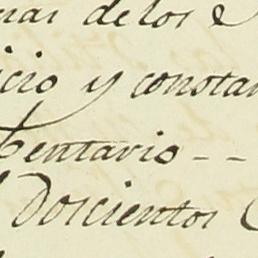 mas de los
icio y constan
bentario - -
Doscientos